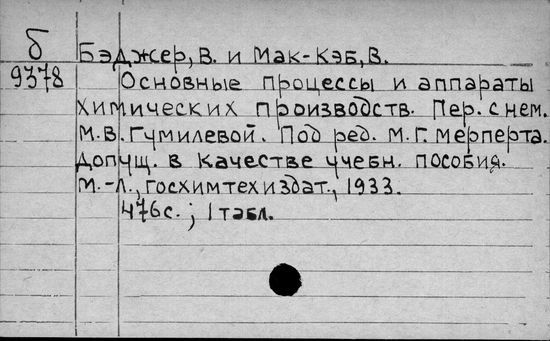 б
9378
Бэджер, В. и Мак-Кэб, В.
Основные процессы и аппараты
химических производств. Пер. с нем.
М.В. Гумилевой. Под ред. М.Г. Мерперта.
Допущ. в качестве учебн. пособия.
М.-Л., Госхимтехиздат., 1933.
476с.; 1 табл.